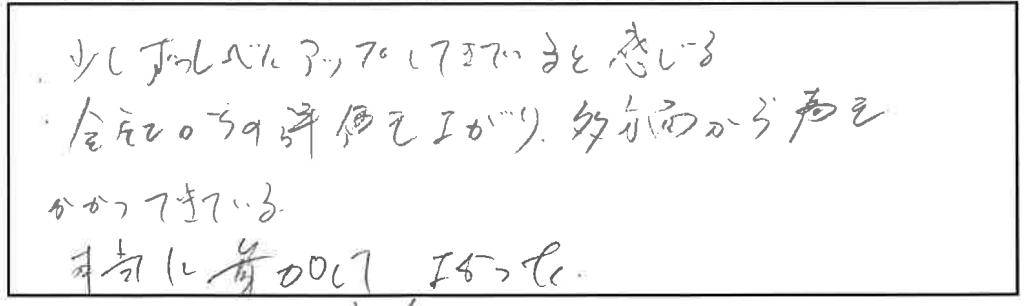 ・少しずつレベルアップしてきていると感じる
・会社からの評価も上がり、多方面から声も
かかってきている。
本当に参加して よかった。